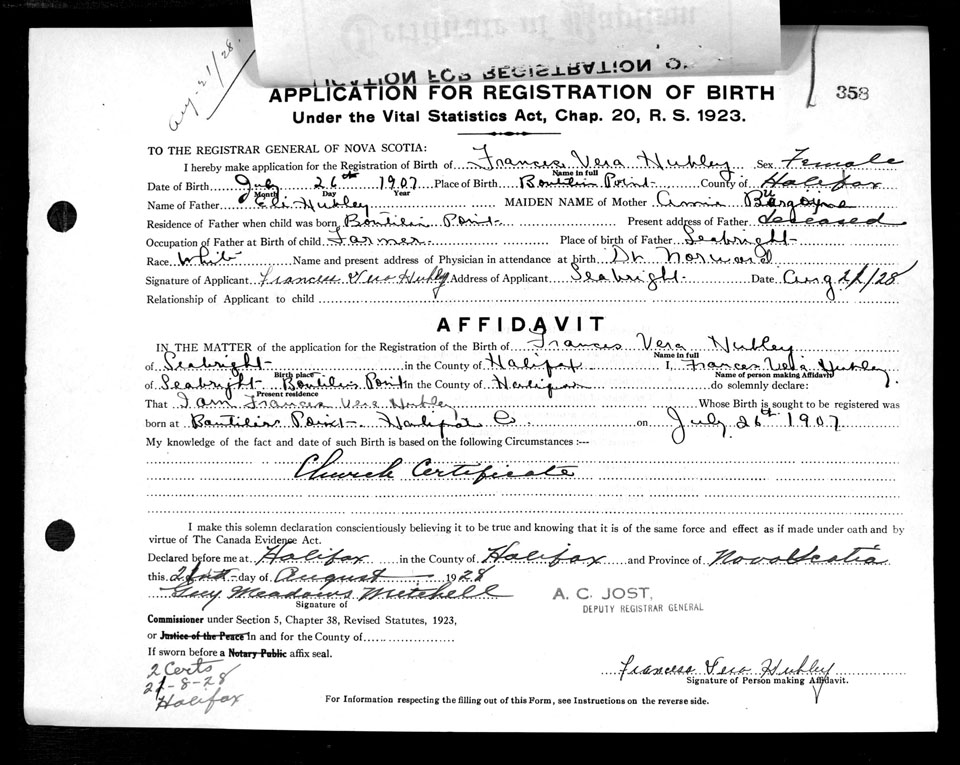 Certificate of Baptism
APPLICATION FOR REGISTRATION O
Aug-21/28.
APPLICATION FOR REGISTRATION OF BIRTH
358
Under the Vital Statistics Act, Chap. 20, R. S. 1923.
TO THE REGISTRAR GENERAL OF NOVA SCOTIA:
I hereby make application for the Registration of Birth of Frances Vera Hubley Sex Female
Name in full
Date of Birth July 26th 1907 Place of Birth Boutilier Point County of Halifax
Month Day Year
Name of Father Eli Hubley MAIDEN NAME of Mother Annie Burgoyne
Residence of Father when child was born Boutilier Point Present address of Father deceased
Occupation of Father at Birth of child Farmer Place of birth of Father Seabright
Race White Name and present address of Physician in attendance at birth Dr Norward
Signature of Applicant Frances Vera Hubley Address of Applicant Seabright Date Aug 21/28
Relationship of Applicant to child
AFFIDAVIT
IN THE MATTER of the application for the Registration of the Birth of Frances Vera Hubley
Name in full
of Seabright in the County of Halifax I, Frances Vera Hubley
Birth place Name of person making Affidavit
of Seabright Boutiliers Point In the County of Halifax do solemnly declare:
Present residence
That I am Frances Vera Hubley Whose Birth is sought to be registered was
born at Boutiliers Point Halifax Co. on July 26th 1907
My knowledge of the fact and date of such Birth is based on the following Circumstances :—
Church Certificate
I make this solemn declaration conscientiously believing it to be true and knowing that it is of the same force and effect as if made under oath and by
virtue of The Canada Evidence Act.
Declared before me at Halifax in the County of Halifax and Province of Nova Scotia
this 21st day of August 1928
Guy Meadows Mitchell
A. C. JOST,
Signature of
DEPUTY REGISTRAR GENERAL
Commissioner under Section 5, Chapter 38, Revised Statutes, 1923,
or Justice of the Peace In and for the County of
If sworn before a Notary Public affix seal.
2 Certs
21-8-28
Halifax
Frances Vera Hubley
Signature of Person making Affidavit.
For Information respecting the filling out of this Form, see Instructions on the reverse side.